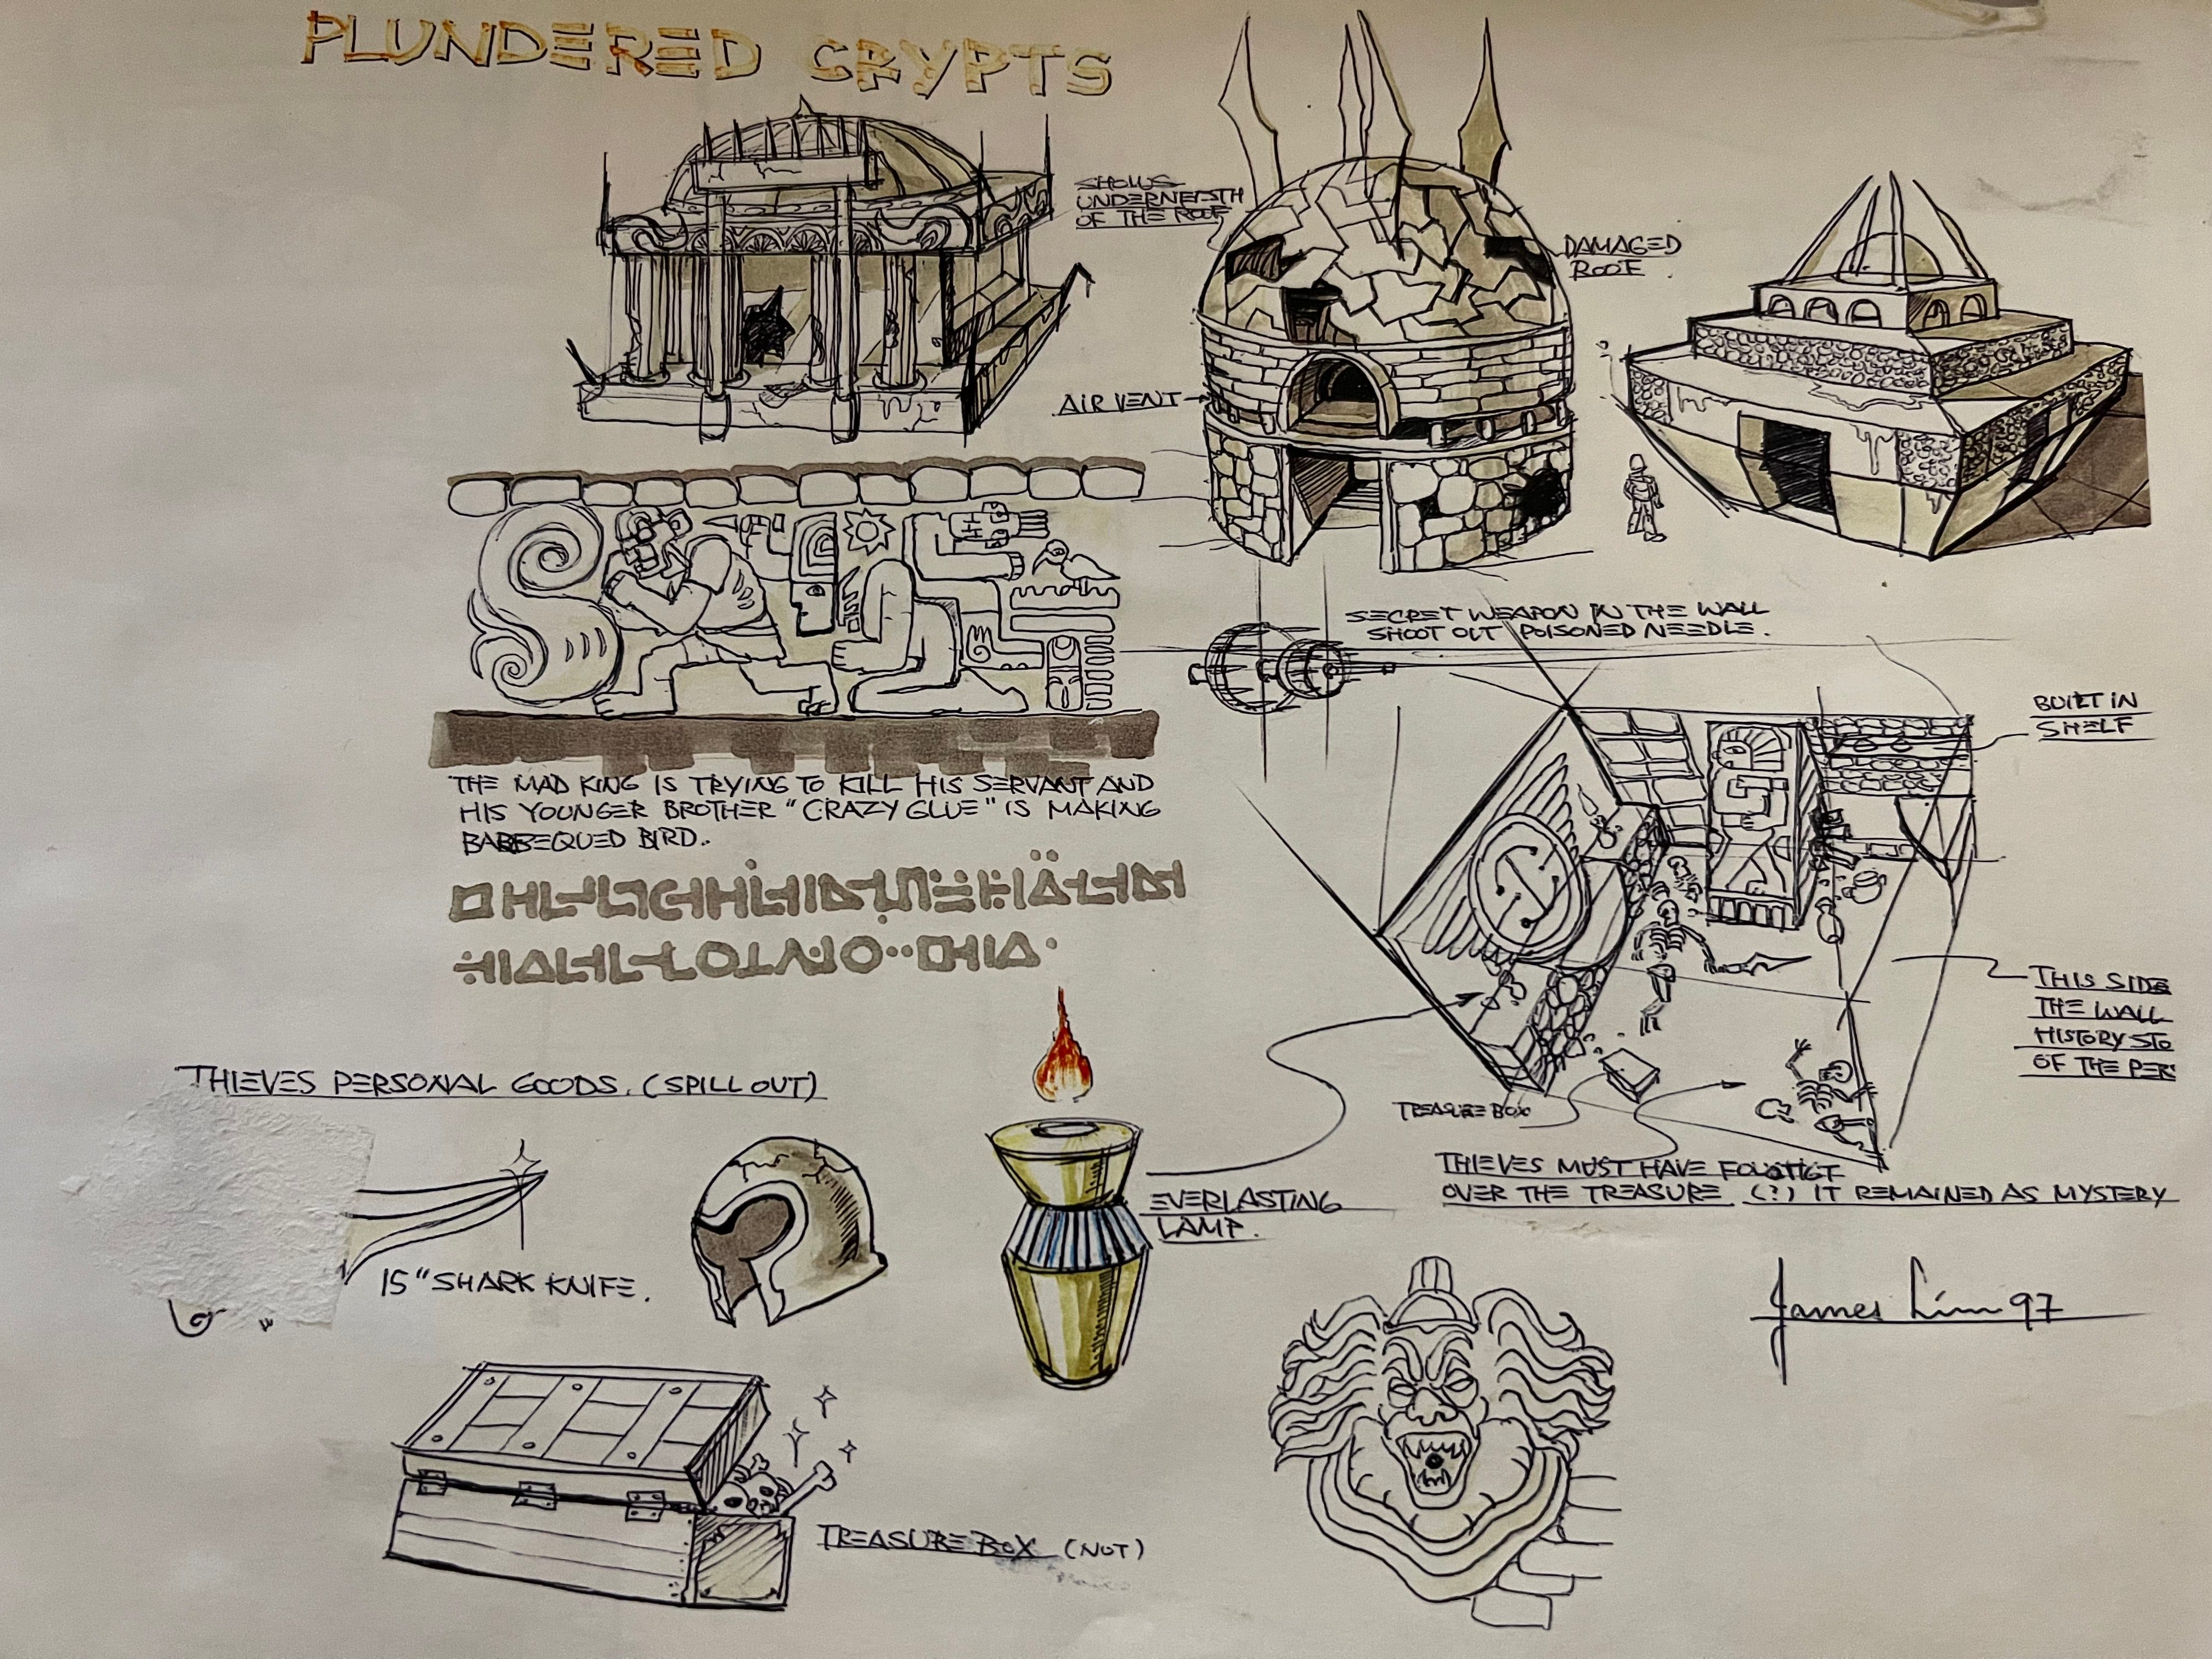 PLUNDERED CRYPTS
SHOWS
UNDERNEATH
OF THE ROOF
DAMAGED
ROOF.
AIR VENT
SECRET WEAPON IN THE WALL
SHOOT OUT POISONED NEEDLE.
BUILT IN
SHELF
THE MAD KING IS TRYING TO KILL HIS SERVANT AND
HIS YOUNGER BROTHER "CRAZY GLUE" IS MAKING
BARBEQUED BIRD..
THIS SIDE
THE WALL
HISTORY STO
OF THE PER
TREASURE BOX
THIEVES MUST HAVE FOUGTGT
OVER THE TREASURE (?) IT REMAINED AS MYSTERY
THIEVES PERSONAL GOODS. (SPILL OUT)
15" SHARK KNIFE.
EVERLASTING
LAMP.
James Lim 97
TREASURE BOX (NOT)